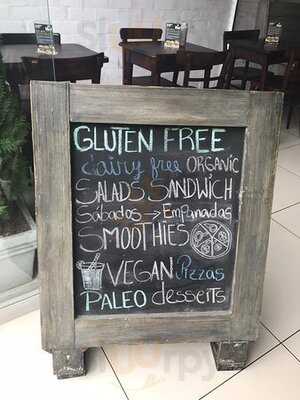 GLUTEN FREE
dairy free ORGANIC
SALADS SANDWICH
Sábados → Empanadas
SMOOTHIES
VEGAN Pizzas
PALEO desserts